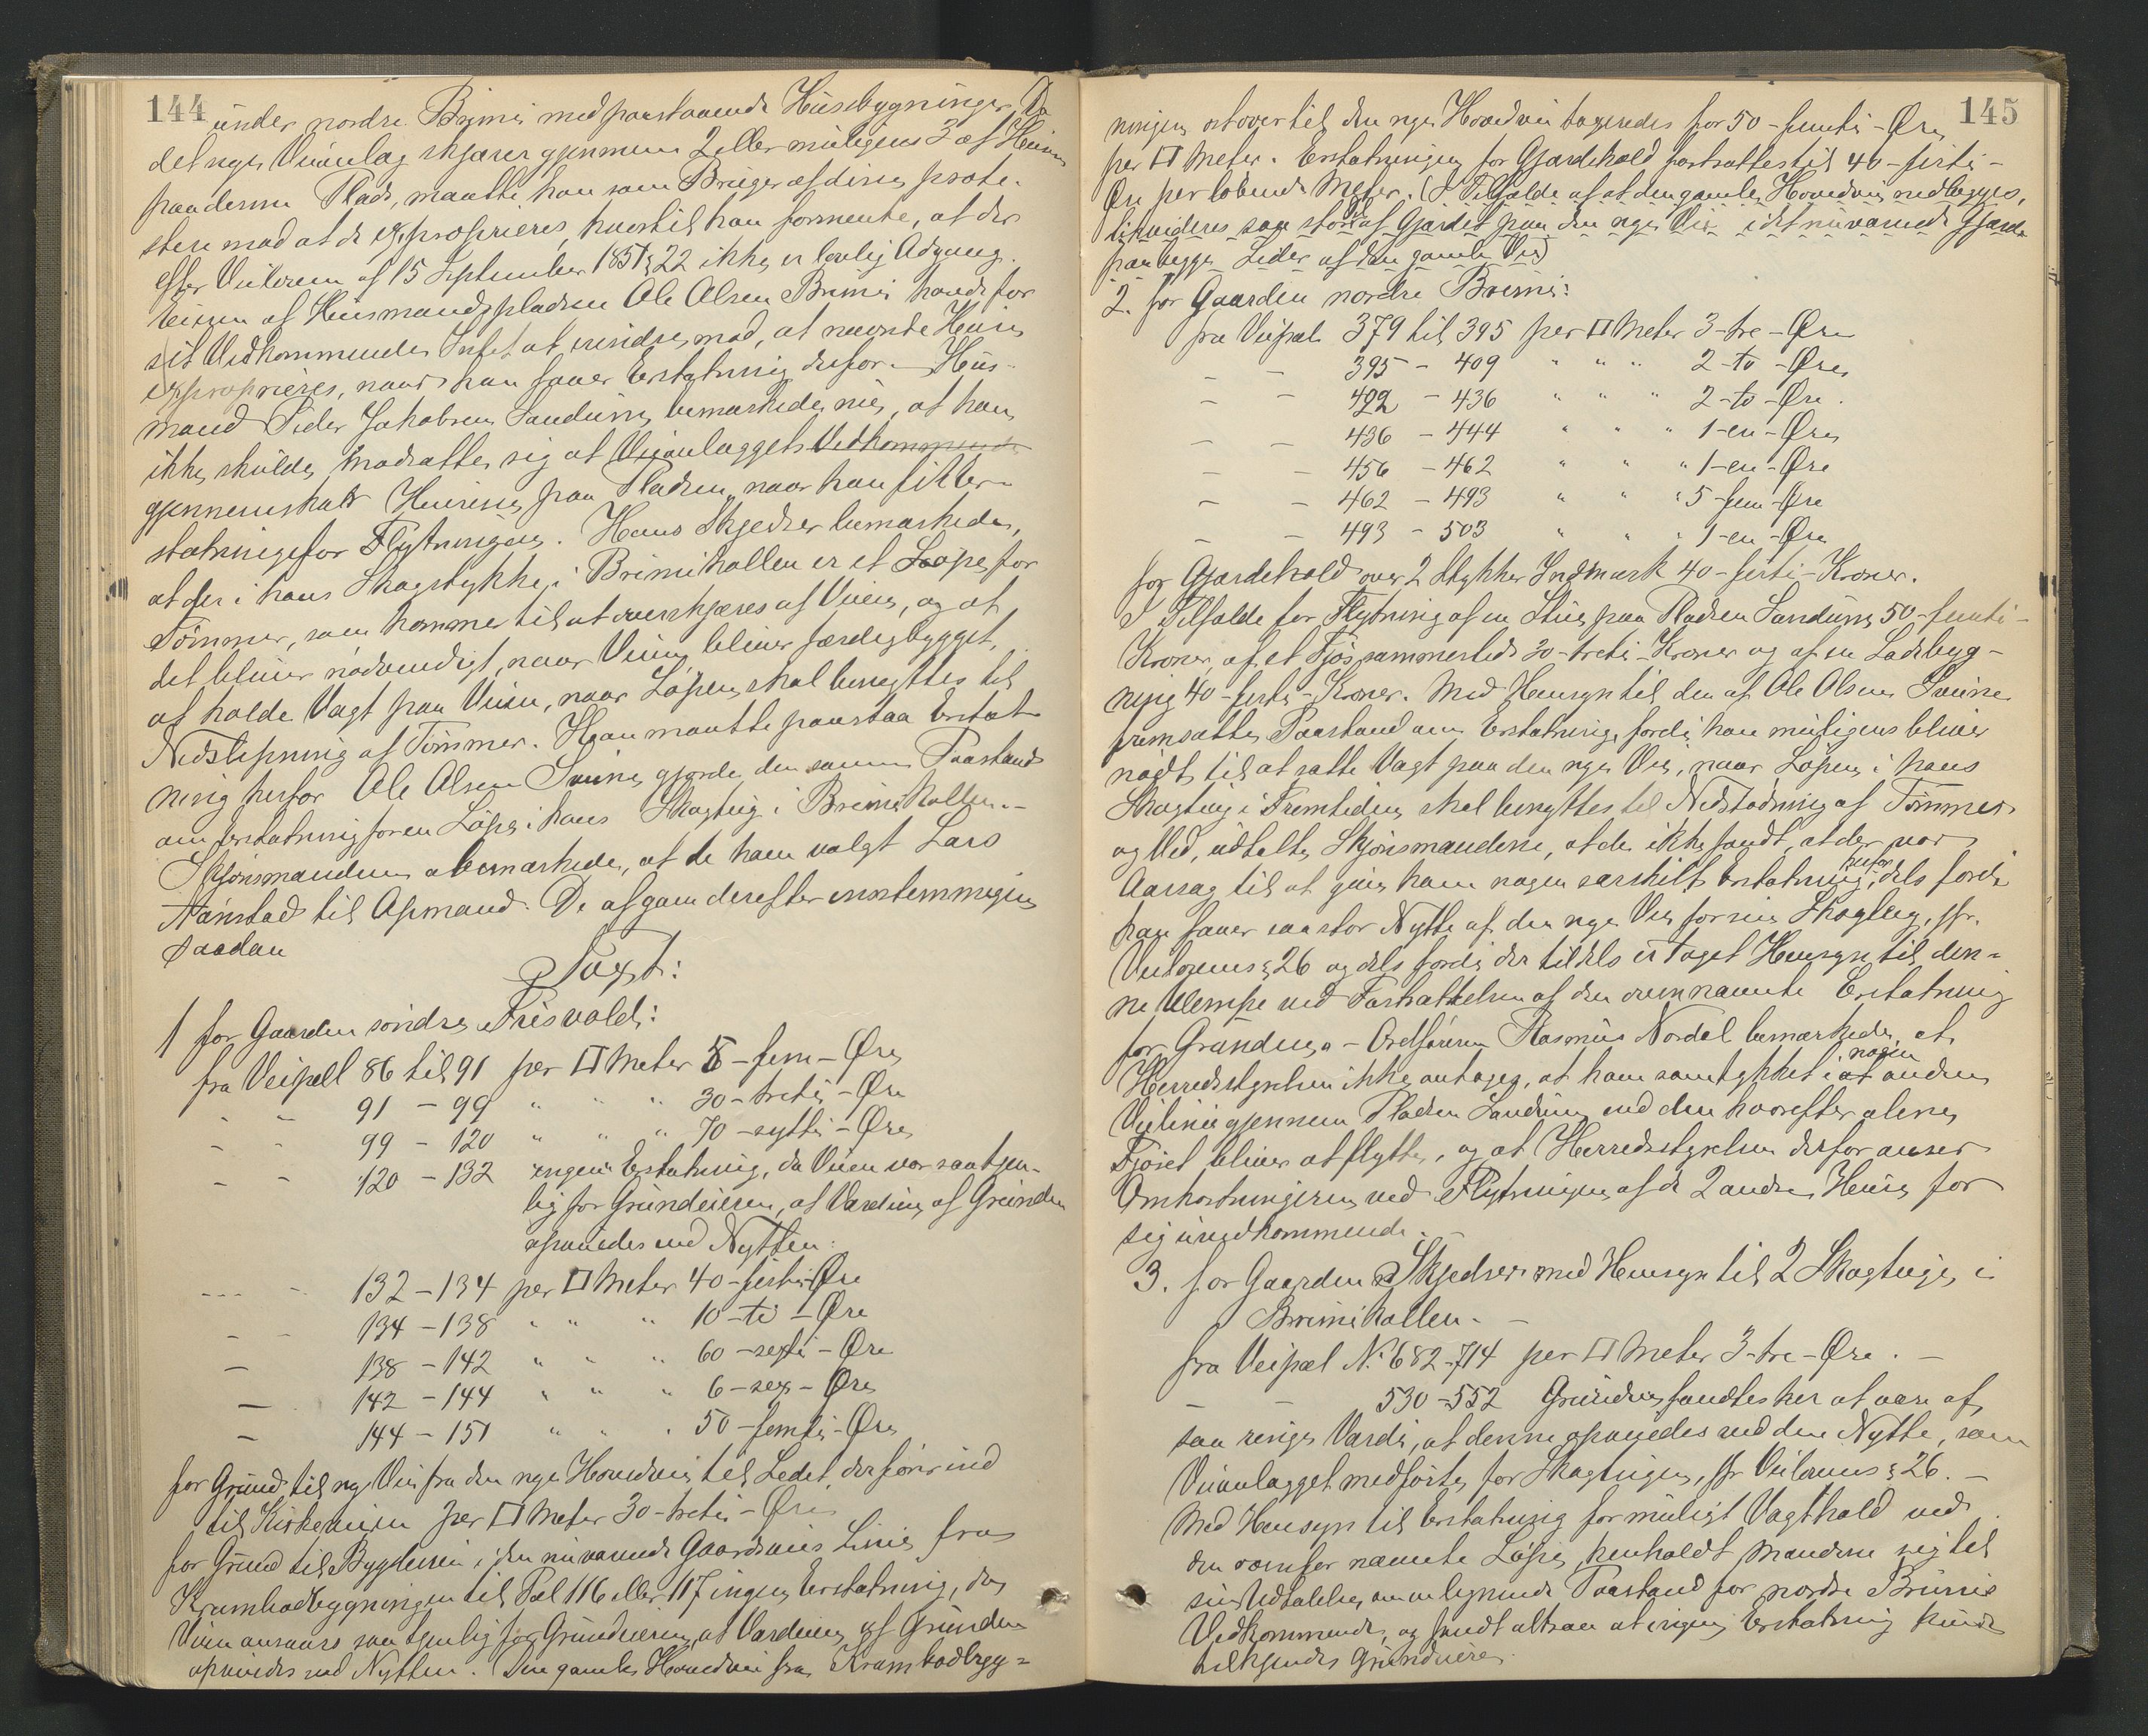 144
under nordre Brimi med paastaaende Husebygninger. Da
det nye Veianlæg skjærer gjennem 2 eller muligens 3 af Husene
paa denne Plads, maatte han som Bruger af disse prote-
stere mod at de exproprieres, hvortil han formente, at der
efter Veiloven af 15 September 1851 § 22 ikke er lovlig Adgang.
Eieren af Husmandspladsen Ole Olsen Brimi havde for
sit Vedkommende Intet at erindre mod, at nævnte Huse
exproprieres, naar han faaer Erstatning derfor. Hus-
mand Peder Jakobsen Sandum bemærkede nu, at han
ikke skulde modsætte sig at Veianlægget Vedkommende
gjennemskar Husene paa Pladsen, naar han fik Er-
statning for Flytningen. Hans Skjedser bemærkede,
at der i hans Skogstykke i Brimikollen er et Løpe for
Tømmer, som kommer til at overskjæres af Veien, og at
det bliver nødvendigt, naar Veien bliver færdigbygget,
at holde Vagt paa Veien, naar Løpen skal benyttes til
Nedslipning af Tømmer. Han maatte paastaa Erstat-
ning herfor. Ole Olsen Sveine gjorde den samme Paastand
om Erstatning for en Løpe i hans Skogteig i Brimikollen.-
Skjønsmændene bemærkede, at de have valgt Lars
Aanstad til Opmand. De afgave derefter enstemmigen
saadan
Taxt:
1 for Gaarden søndre Frisvold:
fra Veipæl 86 til 91 per □ Meter 5-fem-Øre
- - 91 - 99 " " " 30-treti-Øre
- - 99 - 120 " " " 70-sytti-Øre
- - 120 - 132 ingen Erstatning, da Veien var saa tjen-
lig for Grundeieren, at Værdien af Grunden
opveiedes ved Nytten.
- - 132-134 per □ Meter 40-firti-Øre
- - 134-138 " " " 10-ti-Øre
- 138-142 " " " 60-sexti-Øre
- 142-144 " " " 6-sex-Øre
- 144-151 " " " 50-femti-Øre
for Grund til ny Vei fra den nye Hovedvei til Ledet, der fører ind
til Kirkeveien per □ Meter 30-treti-Øre
for Grund til Bygdevei i den nuværende Gaardsveis Linie fra
Krambodbygningen til Pæl 116 eller 117 ingen Erstatning, da
Veien ansaaes saa tjenlig for Grundeieren, at Værdien af Grunden
opveiedes ved Nytten. Den gamle Hovedvei fra Krambodbyg-
145
ningen ostover til den nye Hovedvei taxeredes for 50-femti-Øre
per □ Meter. Erstatningen for Gjærdehold fastsattes til 40-firti-
Øre per løbende Meter. (I Tilfælde af at den gamle Hovedvei nedlægges,
likvideres saa stor af Gjærdet paa den nye Vei i det nuværende Gjærde
paa begge Sider af den gamle Vei)
2. for Gaarden nordre Brimi:
fra Veipæl 379 til 395 per □ Meter 3-tre-Øre
- - 395 - 409 " " " 2-to-Øre
- - 422 - 436 " " " 2-to-Øre.
- - 436 - 444 " " " 1-en-Øre
- - 456 - 462 " " " 1-en-Øre
- - 462 - 493 " " " 5-fem-Øre
- - 493 - 503 " " " 1-en-Øre
for Gjærdehold over 2 Stykker Indmark 40-firti-Kroner.
I Tilfælde for Flytning af en Stue paa Pladsen Sandum 50-femti-
Kroner, af et Fjøs sammesteds 30-treti-Kroner og af en Ladebyg-
ning 40-firti-Kroner. Med Hensyn til den af Ole Olsen Sveine
fremsatte Paastand om Erstatning, fordi han muligens bliver
nødt til at sætte Vagt paa den nye Vei, naar Løpen i hans
Skogteig i Fremtiden skal benyttes til Nedstødning af Tømmer
og Ved, udtalte Skjønsmændene, at de ikke fandt, at der var
Aarsag til at give ham nogen særskilt Erstatning herfor, dels fordi
han faaer saa stor Nytte af den nye Vei for sin Skogteig, jfr.
Veilovens § 26 og dels fordi der tildels er taget Hensyn til den-
ne Ulempe ved Fastsættelsen af den ovennævnte Erstatning
for Grunden. - Ordføreren Rasmus Nordal bemærkede, at
Herredsstyrelsen ikke antages, at have samtykket i at nogen anden
Veilinie gjennem Pladsen Sandum end den hvorefter alene
Fjøset bliver at flytte, og at Herredsstyrelsen derfor anser
Omkostningerne ved Flytningen af de 2 andre Huse for
sig uvedkommende. -
3. for Gaarden Skjedser med Hensyn til 2 Skogteige i
Brimikollen. -
fra Veipæl No 682-714 per □ Meter 3-tre-Øre. -
- - 530-552 Grunden fandtes her at være af
saa ringe Værdi, at denne opveiedes ved den Nytte, som
Veianlægget medførte for Skogteigen, jfr Veilovens § 26. -
Med Hensyn til Erstatning for muligt Vagthold ved
den ovenfor nævnte Løpe, henholdt Mændene sig til
sin Udtalelse om en lignende Paastand for nordre Brimis
Vedkommende, og fandt altsaa at ingen Erstatning kunde
tilkjendes Grundeieren.